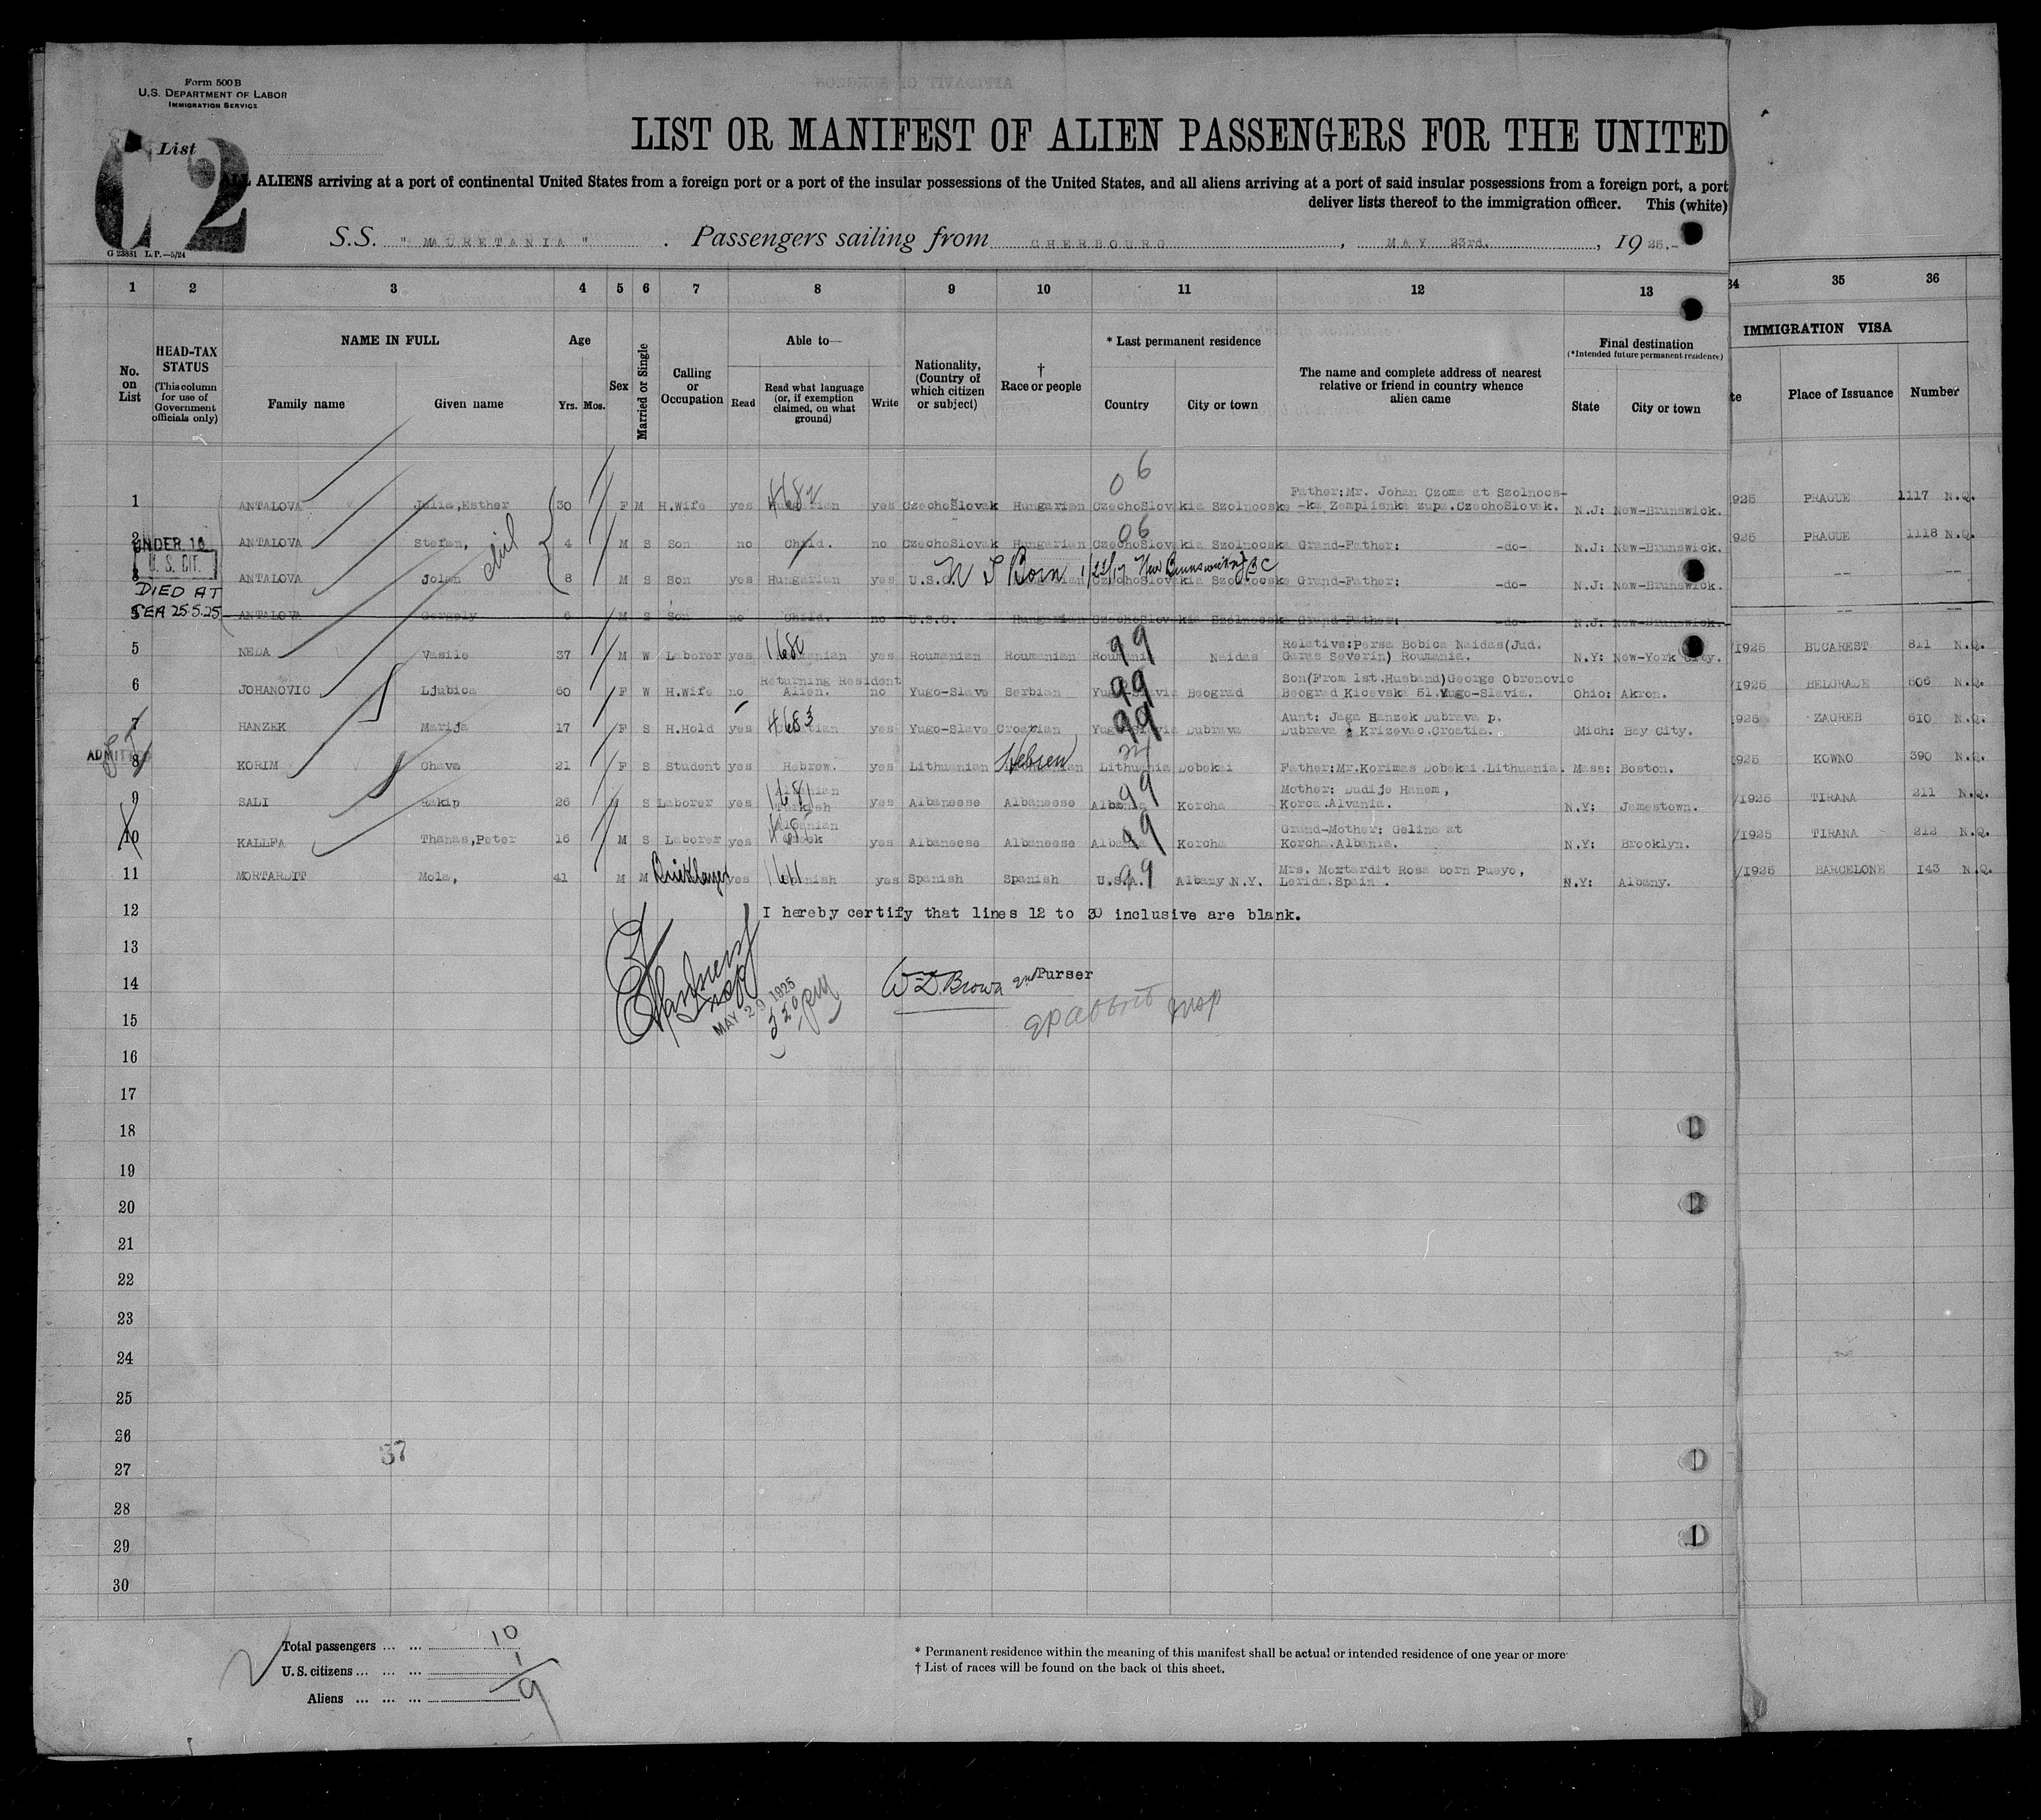 Form 500 B
U.S. DEPARTMENT OF LABOR
IMMIGRATION SERVICE
List
C2
LIST OR MANIFEST OF ALIEN PASSENGERS FOR THE UNITED
ALL ALIENS arriving at a port of continental United States from a foreign port or a port of the insular possessions of the United States, and all aliens arriving at a port of said insular possessions from a foreign port, a port
deliver lists thereof to the immigration officer. This (white)
S.S. " MAURETANIA " . Passengers sailing from CHERBOURG , MAY 23rd. , 1925.-
G 23881 L.P.—5/24
1 2 3 4 5 6 7 8 9 10 11 12 13 34 35 36
No. on List
HEAD-TAX STATUS
(This column for use of Government officials only)
NAME IN FULL
Family name Given name
Age
Yrs. Mos.
Sex
Married or Single
Calling or Occupation
Able to—
Read
Read what language (or, if exemption claimed, on what ground)
Write
Nationality, (Country of which citizen or subject)
† Race or people
* Last permanent residence
Country City or town
The name and complete address of nearest relative or friend in country whence alien came
Final destination
(*Intended future permanent residence)
State City or town
IMMIGRATION VISA
te Place of Issuance Number
06
1 ANTALOVA Julia,Esther 30 F M H.Wife yes Hungarian yes CzechoSlovak Hungarian CzechoSlovakia Szolnocska Father:Mr. Johan Czoma at Szolnocs-
-ka Zemplienka zupa.CzechoSlovak. N.J: New-Brunswick. 925 PRAGUE 1117 N.Q.
06
2 ANTALOVA Stefan, 4 M S Son no Child. no CzechoSlovak Hungarian CzechoSlovakia Szolnocska Grand-Father: -do- N.J: New-Brunswick. 925 PRAGUE 1118 N.Q.
UNDER 16
U. S. CIT.
3 ANTALOVA Jolan 8 M S Son yes Hungarian yes U.S. Born New Brunswick NJ BC CzechoSlovakia Szolnocska Grand-Father: -do- N.J: New-Brunswick. -- --
DIED AT
SEA 25.5.25
ANTALOVA Gergely 6 M S Son no Child. no U.S.O. Hungarian CzechoSlovakia Szolnocska Grand-Father: -do- N.J: New-Brunswick. -- --
5 NEDA Vasile 37 M W Laborer yes 1680 yes Roumanian Roumanian Roumani 99 Naidas Relative:Persa Bobica Naidas(Jud.
Garas Severin) Roumania. N.Y: New-York City. /1925 BUCAREST 811 N.Q.
6 JOHANOVIC Ljubica 60 F W H.Wife no Returning Resident
Alien. no Yugo-Slave Serbian Yugo-Slavia 99 Beograd Son(From 1st.Husband)George Obrenovic
Beograd Kicevska 51.Yugo-Slavia. Ohio: Akron. /1925 BELGRADE 606 N.Q.
7 HANZEK Marija 17 F S H.Hold yes 1683 yes Yugo-Slave Croatian Yugo-Slavia 99 Dubrava Aunt: Jaga Hanzek Dubrava p.
Dubrava Krizevac.Croatia. Mich: Bay City. 925 ZAGREB 610 N.Q.
ADMITTED
8 KORIM Chava 21 F S Student yes Hebrew. yes Lithuanian Hebrew Lithuania Dobekai Father:Mr.Korimas Dobekai.Lithuania. Mass: Boston. 925 KOWNO 390 N.Q.
9 SALI Rakip 26 S Laborer yes Turkish yes Albaneese Albaneese Albania 99 Korcha Mother: Dudije Hanem,
Korca.Alvania. N.Y: Jamestown. /1925 TIRANA 211 N.Q.
10 KALLFA Thanas,Peter 16 M S Laborer yes Albanian
Greek yes Albaneese Albaneese Albania 99 Korcha Grand-Mother: Gelina at
Korcha.Albania. N.Y: Brooklyn. /1925 TIRANA 212 N.Q.
11 MORTARDIT Mola, 41 M M Bricklayer yes Spanish yes Spanish Spanish U.S.A. 99 Albany N.Y. Mrs. Mortardit Rosa born Pueyo,
Lerida.Spain . N.Y: Albany. /1925 BARCELONE 143 N.Q.
12 I hereby certify that lines 12 to 30 inclusive are blank.
13
14 W D Brown 2nd Purser
MAY 29 1925
3 20 PM
15
16
17
18
19
20
21
22
23
24
25
26
37
27
28
29
30
Total passengers ... ... 10
U.S. citizens ... ... ... 1
Aliens ... ... ... 9
* Permanent residence within the meaning of this manifest shall be actual or intended residence of one year or more
† List of races will be found on the back of this sheet.